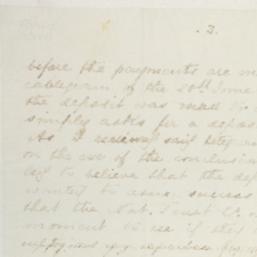 .3.
before the payments are m
cablegram of the 20th June
the deposit was made to
simply asks for a depos
As I received said
on the eve of the conclusion
led to believe that the dep
wanted to assure success
that the Nat. Trust Co. o
moment to see if this